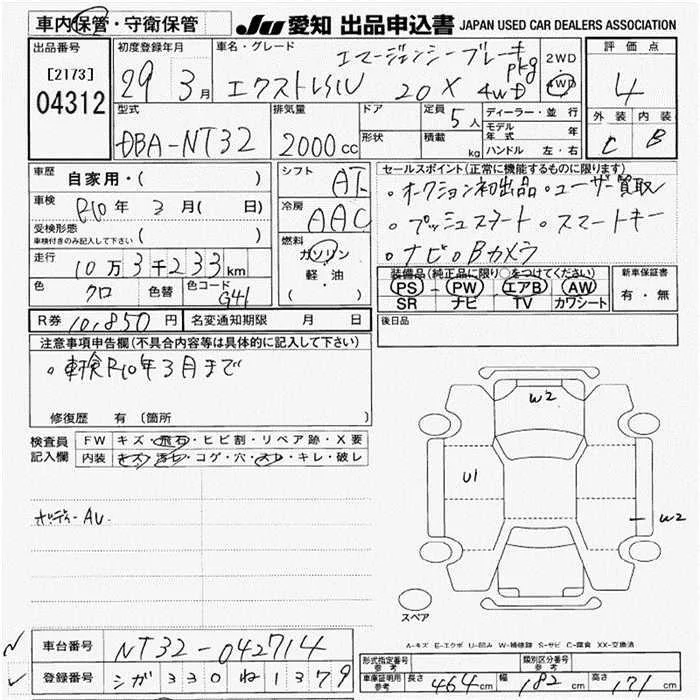 車内保管・守衛保管
JU 愛知 出品申込書 JAPAN USED CAR DEALERS ASSOCIATION
出品番号 [2173] 04312
初度登録年月 29 3月
車名・グレード エマージェンシーブレーキpkg
エクストレイル 20X 4WD
2WD 4WD
評価点 4
外装 C 内装 B
型式 DBA-NT32
排気量 2000cc
ドア 形状
定員 5人 積載 kg
ディーラー・並行
モデル年式 年
ハンドル 左・右
車歴 自家用・( )
車検 R10年 3月( 日)
受検形態 車検付きのみ記入して下さい ( )
走行 10万3千233km
色 クロ 色替 色コード G41
シフト AT
冷房 AAC
燃料 ガソリン 軽・油 ( )
セールスポイント(正常に機能するものに限ります)
・オークション初出品・ユーザー買取
・プッシュスタート・スマートキー
・ナビ・Bカメラ
装備品(純正品に限り○をつけてください)
PS PW エアB AW
SR ナビ TV カワシート
新車保証書 有・無
R券 10,850円 名変通知期限 月 日
後日品
注意事項申告欄(不具合内容等は具体的に記入して下さい)
・車検R10年3月まで
修復歴 有 (箇所 )
検査員記入欄
FW キズ・飛石・ヒビ割・リペア跡・X要
内装 キズ・汚レ・コゲ・穴・スレ・キレ・破レ
ボディーAU.
W2
U1
W2
スペア
A-キズ E-エクボ U-凹み W-補修跡 S-サビ C-腐食 XX-交換済
車台番号 NT32-042714
登録番号 シガ 330 ね 1379
形式指定番号 参考
類別区分番号 参考
車庫証明用 参考 長さ 464cm 幅 182cm 高さ 171cm